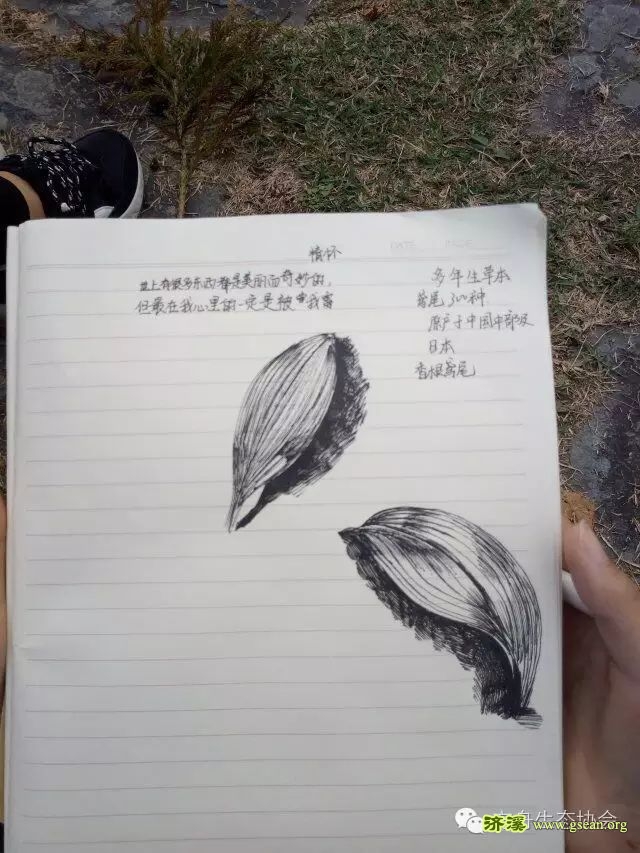 DATE PAGE
情怀
世上有很多东西都是美丽而奇妙的，
但最在我心里的一定是被我窗
多年生草本
鸢尾 300种
原产于中国中部及
日本
香根鸢尾
生态协会
济溪 www.gsean.org